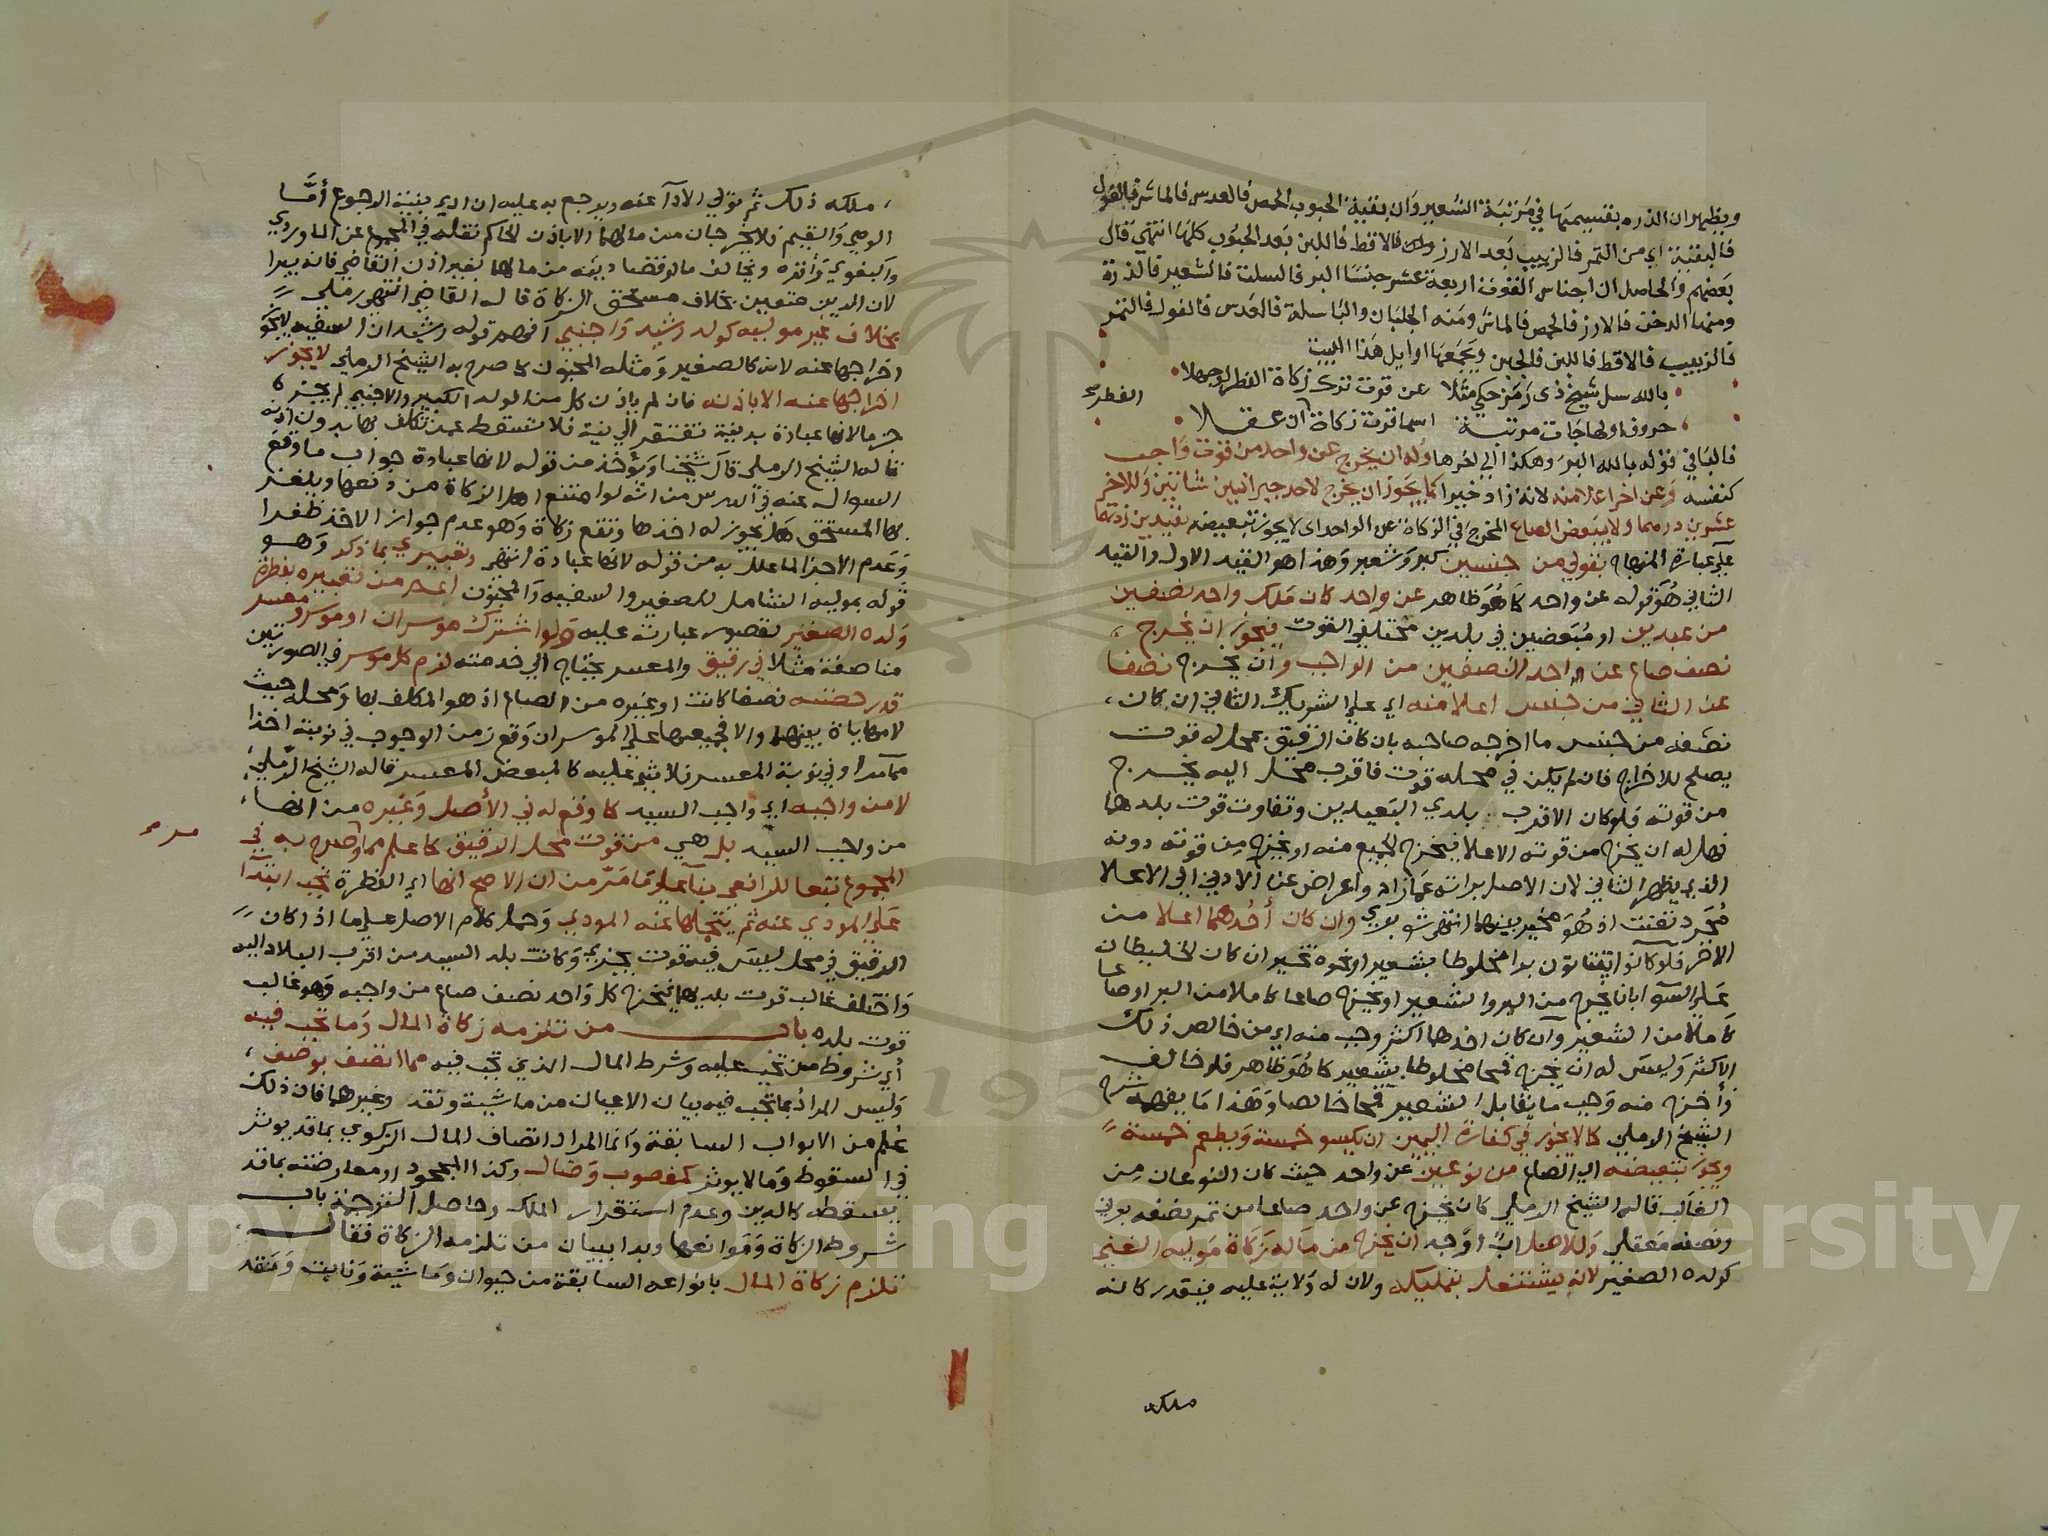 ويظهر ان الذره بقسيميها في مرتبة الشعير وان بقية الحبوب الحمص فالعدس فالماش فالفول
فالبقية اي من التمر فالزبيب بعد الارز وان فالاقط فاللبن بعد الحبوب كلها انتهي قال
بعضهم والحاصل ان اجناس القوت اربعة عشر جنسا البر فالسلت فالشعير فالذرة
ومنها الدخن فالارز فالحمص فالماش ومنه الجلبان والباسلة فالعدس فالفول فالتمر
فالزبيب فالاقط فاللبن فالجبن ويجمعها اوايل هذا البيت
بالله سل شيخ ذي رمز حكي مثلا عن قوت ترك زكاة الفطر لو جهلا
الفطر صح
حروف اولها جات مرتبة اسما قوت زكاة ان عقلا
فالباقي قوله بالله البر وهكذا الي اخرها وله ان يخرج عن واحد من قوت واجب
كنفسه وعن اخر اعلا منه لانه زاد خيرا كما يجوز ان يخرج لاحد جبرانين شاتين وللاخر
عشرين درهما ولا يبعض الصاع المخرج في الزكاة عن الواحد اى لا يجوز تبعيضه بقيدين زدتهما
علي عبارة المنهاج بقولي من جنسين كبر وشعير وهذا هو القيد الاول والقيد
الثاني هو قوله عن واحد كما هو ظاهر عن واحد كان ملك واحد نصفين
من عبدين او مبعضين في بلدين مختلفي القوت فيجوز ان يخرج
نصف صاع عن احد النصفين من الواجب وان يخرج نصفا
عن الثاني من جنس اعلا منه اي علي الشريك الثاني ان كان
نصفه من جنس ما اخرجه صاحبه بان كان الرقيق بمحل له قوت
يصلح للاخراج فان لم يكن في محله قوت فاقرب محل اليه يخرج
من قوته فلو كان الاقرب بلدي البعيدين وتفاوت قوت بلدهما
فهل له ان يخرج من قوته الاعلا فيخرج الجميع منه او يخرج من قوته دونه
الذي يظهر الثاني لان الاصل براته عما زاد واعراض عن الادني الي الاعلا
مجرد تعنت اذ هو مخير بينهما انتهي شوبري وان كان احدهما اعلا من
الاخر فلو كانوا يقتاتون برا مخلوطا بشعير او نحوه تخير ان كان الخليطان
علي السوا بان يخرج من البر والشعير او يخرج صاعا كاملا من البر او صاعا
كاملا من الشعير وان كان احدهما اكثر وجب منه اي من خالص ذلك
الاكثر وليس له ان يخرج قمحا مخلوطا بشعير كما هو ظاهر فلو خالف
واخرج منه وجب ما يقابل الشعير قمحا خالصا وهذا ما يفهمه شرح
الشيخ الرملي كما لا يجوز في كفارة اليمين ان يكسو خمسة ويطعم خمسة
ويجوز تبعيضه اي الصاع من نوعين عن واحد حيث كان النوعان من
الغالب قاله الشيخ الرملي كان يخرج عن واحد صاعا من تمر نصفه برني
ونصفه معقلي وللاصل اب او جد ان يخرج من ماله زكاة موليه الغني
كولده الصغير لانه يستقل بتمليكه ولان له ولاية عليه فيقدر كانه
ملكه
ملكه ذلك ثم تولي الادا عنه ويرجع به عليه ان ادي بنية الرجوع أمّا
الوصي والقيم فلا يخرجان من مالهما الا باذن الحاكم نقله في المجموع عن الماوردي
والبغوي واقره ويخالف ما لو قضيا دينه من مالهما بغير اذن القاضي فانه يبرا
لان الدين متعين بخلاف مستحق الزكاة قاله القاضي انتهي رملي
بخلاف غير موليه كولد رشيد واجنبي افهم قوله رشيد ان السفيه يجوز
اخراجها عنه لانه كالصغير ومثله المجنون كما صرح به الشيخ الرملي لا يجوز
اخراجها عنه الا باذنه فان لم ياذن كل من الولد الكبير والاجنبي لم يجز
جزما لانها عبادة بدنية تفتقر الي نية فلا تسقط عمن تكلف بها بدون اذنه
قاله الشيخ الرملي قال شيخنا ويؤخذ من قوله لانها عبادة جواب ما وقع
السوال عنه في الدرس من انه لو امتنع اهل الزكاة من دفعها ويظفر
بها المستحق هل يجوز له اخذها وتقع زكاة وهو عدم جواز الاخذ ظفرا
وعدم الاجزا لما علل به من قوله لانها عبادة انتهي وتعبيري بما ذكر وهو
قوله بموليه الشامل للصغير والسفيه والمجنون اعم من تعبيره بفطرة
ولده الصغير لقصور عبارته عليه ولو اشترك موسران او موسر ومعسر
مناصفة مثلا في رقيق والمعسر يحتاج الي خدمته لزم كل موسر في الصورتين
قدر حصته نصفا كانت او غيره من الصاع اذ هو المكلف بها ومحله حيث
لا مهاياة بينهما والا فجميعها علي الموسر ان وقع زمن الوجوب في نوبته اخذا
مما مر او في نوبة المعسر فلا شي عليه كالمبعض المعسر قاله الشيخ الرملي
لا من واجبه اي واجب السيد كما وقع له في الأصل وغيره من انها
من واجب السيد بل هي من قوت محل الرقيق كما علم مما مر وصرح به في
المجموع تبعا للرافعي بنا علي ما مر من ان الاصح انها اي الفطرة تجب ابتدا
علي المودي عنه ثم يتحملها عنه المودي وحمل كلام الاصل علي ما اذا كان
الرقيق في محل ليس فيه قوت يجزي وكانت بلد السيد من اقرب البلاد اليه
واختلف غالب قوت بلديهما فيخرج كل واحد نصف صاع من واجبه وهو غالب
قوت بلده باب من تلزمه زكاة المال وما تجب فيه
أي شروط من تجب عليه وشرط المال الذي تجب فيه مما اتصف بوصف
وليس المراد بما تجب فيه بيان الاعيان من ماشية ونقد وغيرهما فان ذلك
علم من الابواب السابقة وانما المراد اتصاف المال الزكوي بما قد يوثر
في السقوط وما لا يوثر كمغصوب وضال وكذا المجحود او معارضته بما قد
يسقط كالدين وعدم استقرار الملك وحاصل الترجمة باب
شروط الزكاة وموانعها وبدا ببيان من تلزمه الزكاة فقال
تلزم زكاة المال بانواعه السابقة من حيوان وماشية ونابت ونقد